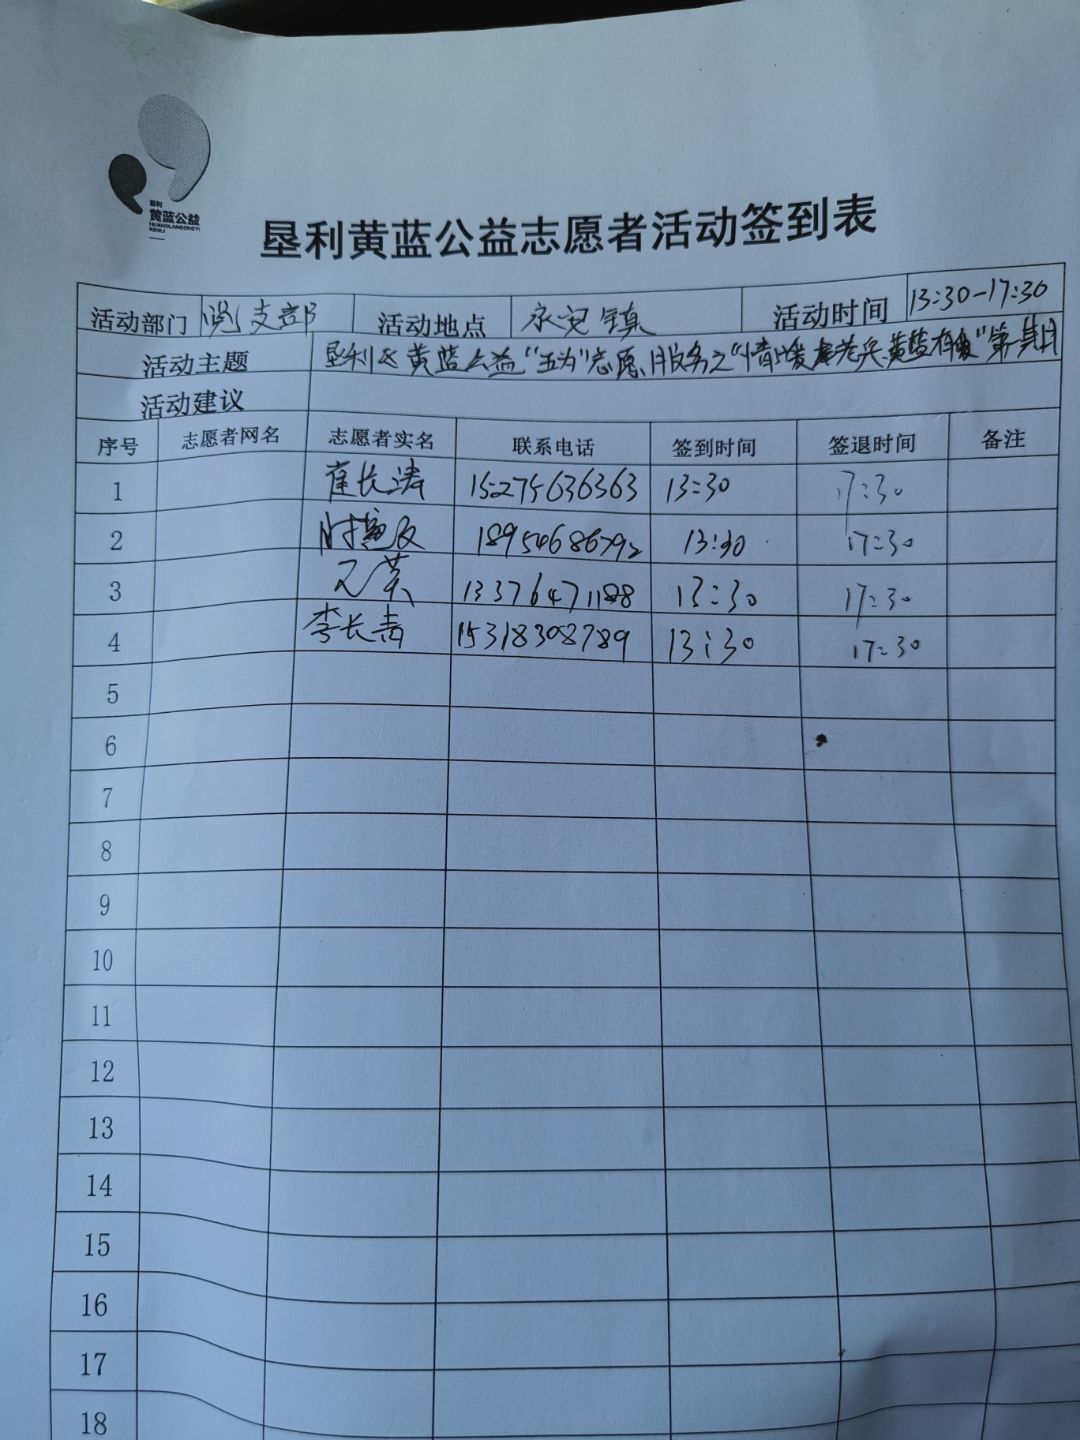 垦利
黄蓝公益
HUANGLANGONGYI
KENLI
垦利黄蓝公益志愿者活动签到表
活动部门 党支部 活动地点 永安镇 活动时间 13:30-17:30
活动主题 垦利区黄蓝公益“五为”志愿服务之“情暖 老兵 黄蓝有爱”第 期
活动建议
序号 志愿者网名 志愿者实名 联系电话 签到时间 签退时间 备注
1 崔长涛 15275636363 13:30 17:30
2 18954686792 13:30 17:30
3 13376471188 13:30 17:30
4 李长青 15318308789 13:30 17:30
5
6
7
8
9
10
11
12
13
14
15
16
17
18